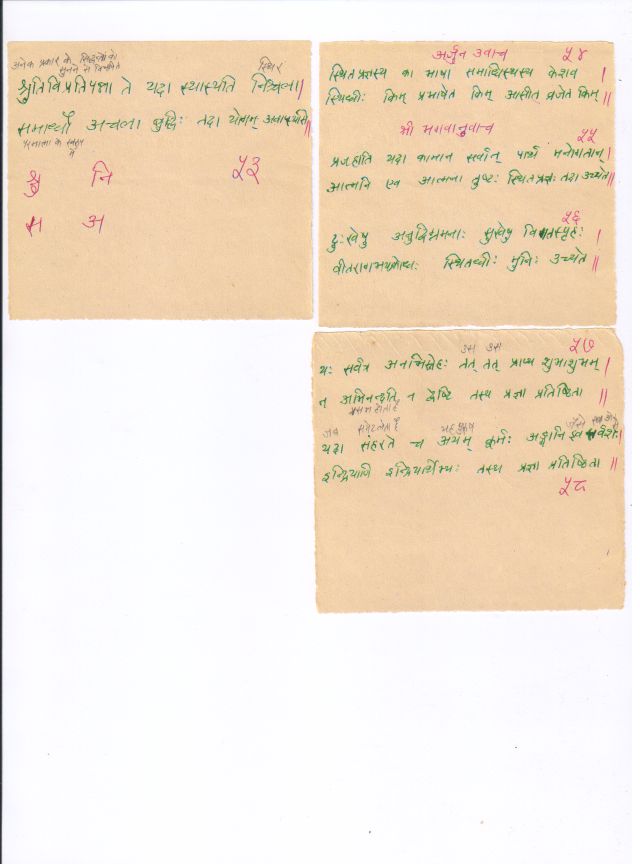 अनेक प्रकार के सिद्धान्तों को
सुनने से विचलित
स्थिर
श्रुतिविप्रतिपन्ना ते यदा स्थास्यति निश्चला|
समाधौ अचला बुद्धिः तदा योगम् अवाप्स्यसि||
परमात्मा के स्वरूप
में
श्रु नि ५३
स अ
अर्जुन उवाच ५४
स्थितप्रज्ञस्य का भाषा समाधिस्थस्य केशव |
स्थितधीः किम् प्रभाषेत किम् आसीत व्रजेत किम्||
श्री भगवानुवाच
५५
प्रजहाति यदा कामान सर्वान् पार्थ मनोगतान्|
आत्मनि एव आत्मना तुष्टः स्थितप्रज्ञः तदा उच्यते||
५६
दुःखेषु अनुद्विग्नमनाः सुखेषु विगतस्पृहः |
वीतरागभयक्रोधः स्थितधीः मुनिः उच्यते||
५७
उस उस
यः सर्वत्र अनभिस्नेहः तत् तत् प्राप्य शुभाशुभम्|
न अभिनन्दति न द्वेष्टि तस्य प्रज्ञा प्रतिष्ठिता||
प्रसन्न होता है
जब समेट लेता है यह पुरुष जैसे सब ओर
यदा संहरते च अयम् कूर्मः अङ्गानि इव सर्वशः|
इन्द्रियाणि इन्द्रियार्थेभ्यः तस्य प्रज्ञा प्रतिष्ठिता||
५८